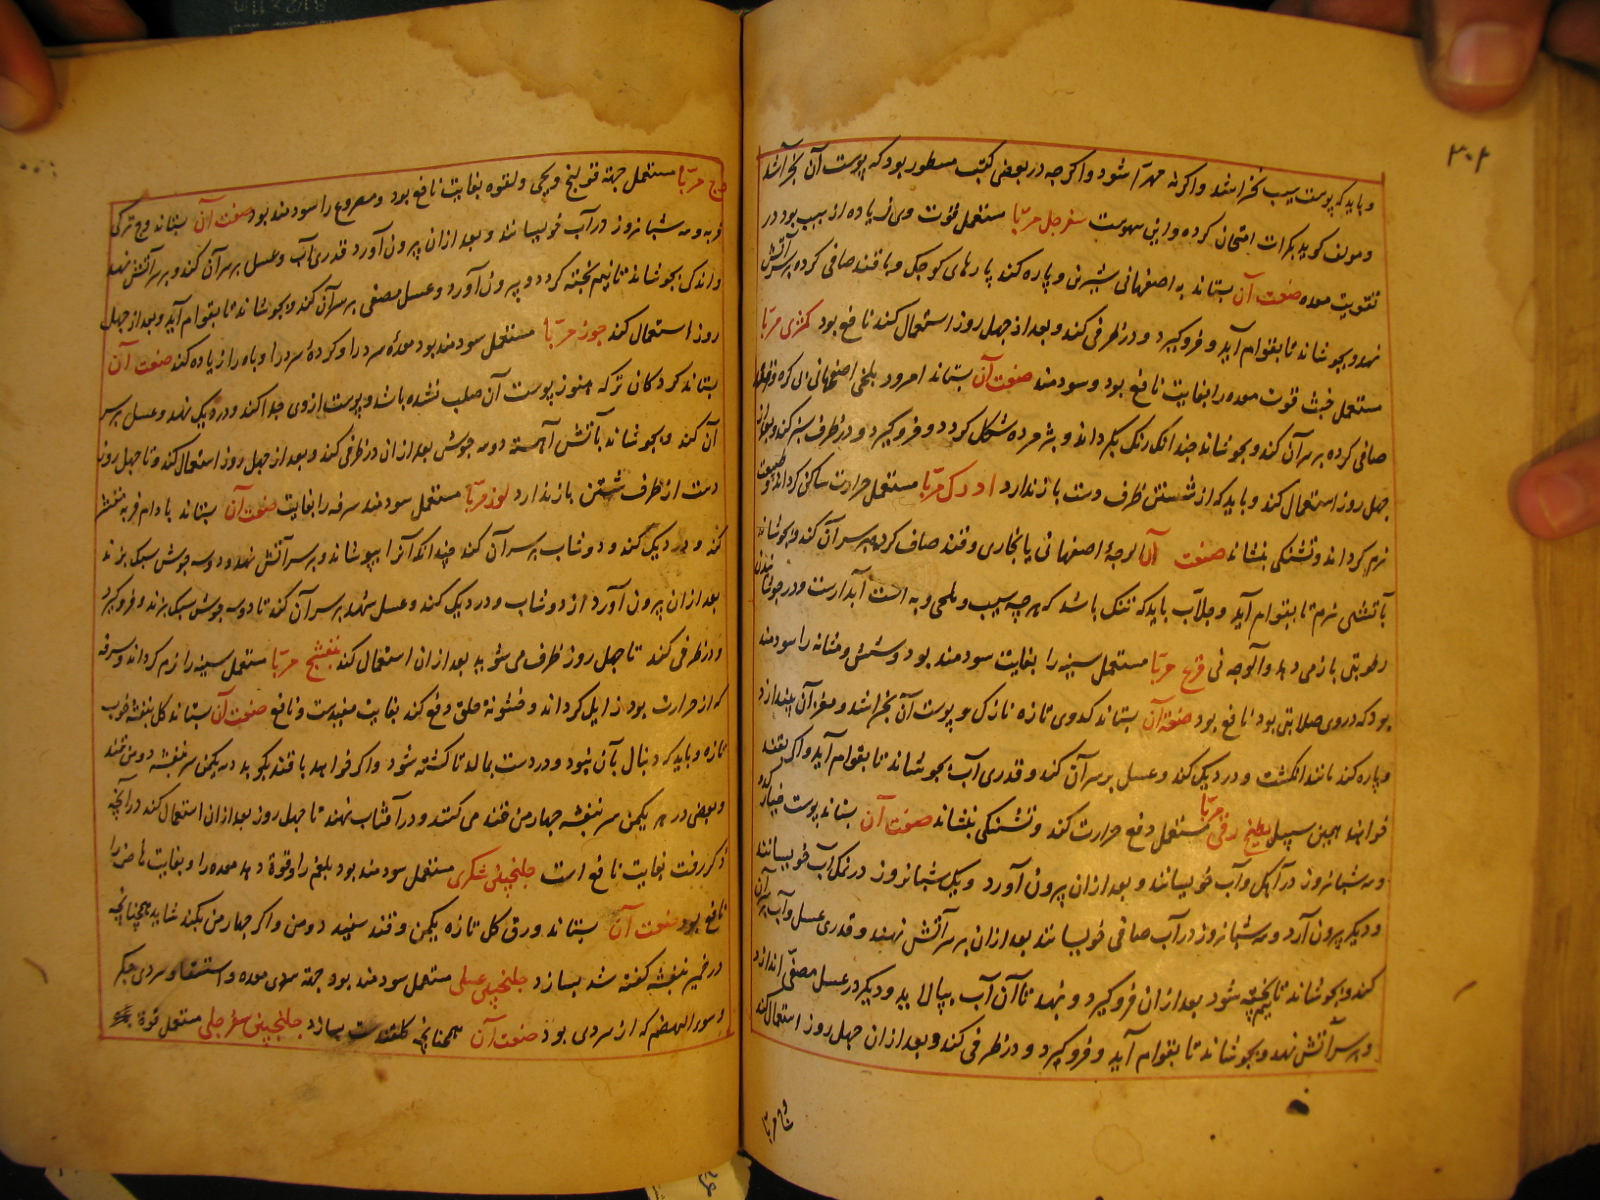 ۳۰۲
و باید که پوست سیب نخراشند و اگرنه مهرّا شود و اگرچه در بعضی کتب مسطور بود که پوست آن بخراشند
و مولف کوید بکرات امتحان کرده و این سهوست سفرجل مربّا مستعمل قوت وی زیاده از سیب بود در
تقویت معده صنعت آن بستاند به اصفهانی شیرین و پاره کند پارهای کوچک و با قند صافی کرده بر سر آتش
نهد و بجوشاند تا بقوام آید و فروکیرد و در ظرفی کند و بعد از چهل روز استعمال کند نافع بود کمثری مربّا
مستعمل خبث قوت معده را بغایت نافع بود و سودمند صنعت آن بستاند امرود بلخی اصفهانی
صافی کرده بر سر آن کند و بجوشاند چندانک رنک بکرداند و پژمرده شکل کردد و فروکیرد و در ظرف سبز کند و بعد از
چهل روز استعمال کند و باید که از شستن ظرف دست باز ندارد ادرک مربّا مستعمل حرارت ساکن کرداند و طبیعت
نرم کرداند و تشنکی بنشاند صنعت آن اوجهٔ اصفهانی یا بخاری و قند صاف کرده بر سر آن کند و بجوشاند
بآتشی نرم تا بقوام آید و جلاب باید که تنک باشد که هرچه سیب و بلحی و به است آبدارست و در جوشانیدن
رطوبتی باز می دهد و آلوجه نی قرع مربّا مستعمل سینه را بغایت سودمند بود و شش و مثانه را سودمند
بود که در وی صلابتی بود نافع بود صنعت آن بستاند کدوی تازه نازک و پوست آن بخراشد و مغز آن بیندازد
و پاره کند مانند انکشت و در دیک کند و عسل بر سر آن کند و قدری آب بجوشاند تا بقوام آید و اکر بقند
خواهند همین سبیل بطیخ رقی مربّا مستعمل دفع حرارت کند و تشنکی بنشاند صنعت آن بستاند پوست
و سه شبانروز در آهک و آب خویسانند و بعد ازان بیرون آورد و یک شبانروز در نمک آب خویسانند
و دیکر بیرون آرد و سه شبانروز در آب صافی خویسانند بعد ازان بر سر آتش نهند و قدری عسل و آب بر سر آن
کند و بجوشاند تا پخته شود بعد ازان فروکیرد و بنهد تا آن آب بپالاید و دیکر در عسل مصفّی اندازد
و بر سر آتش نهد و بجوشاند تا بقوام آید و فروکیرد و در ظرفی کند و بعد ازان چهل روز استعمال کند
وج مربّا
وج مربّا مستعمل جهة قولنج ویحی و لقوه بغایت نافع بود و مصروع را سودمند بود صنعت آن بستاند وج ترکی
فربه و سه شبانروز در آب خویسانند و بعد ازان بیرون آورد قدری آب و عسل بر سر آن کند و بر سر آتش نهد
و اندکی بجوشاند تا نیم پخته کردد و بیرون آورد و عسل مصفی بر سر آن کند و بجوشاند تا بقوام آید و بعد از چهل
روز استعمال کند جوز مربّا مستعمل سودمند بود معدهٔ سرد را و کردهٔ سرد را و باه را زیاده کند صنعت آن
بستاند کردکان تر که هنوز پوست آن صلب نشده باشد و پوست از وی جدا کند و در دیک نهد و عسل بر سر
آن کند و بجوشاند بآتش آهسته دو سه جوش بعد ازان در ظرفی کند و بعد از چهل روز استعمال کند و تا چهل روز
دست از ظرف شستن باز ندارد لوز مربّا مستعمل سودمند سرفه را بغایت صنعت آن بستاند بادام فربه
کند و در دیک کند و دوشاب بر سر آن کند چندانکه آنرا بپوشاند و بر سر آتش نهد و دو سه جوش سبک بزند
بعد ازان بیرون آورد از دوشاب و در دیک کند و عسل شهد بر سر آن کند تا دو سه جوش سبک بزند و فروکیرد
و در ظرفی کند تا چهل روز ظرف می شوید بعد ازان استعمال کند بنفشج مربّا مستعمل سینه را نرم کرداند و سرفه
که از حرارت بود زایل کرداند و خشونة حلق دفع کند بغایت مفیدست و نافع صنعت آن بستاند کل بنفشه خوب
تازه و باید که دنبال بآن نبود و در دست بمالد تا کشته شود و اکر خواهد با قند بکوبد در یکمن سر بنفشه دو من قند
و بعضی در هر یکمن سر بنفشه چهار من قند می کنند و در آفتاب نهند تا چهل روز بعد ازان استعمال کند در آنچه
ذکر رفت بغایت نافع است جلنجبین شکری مستعمل سودمند بود بلغم را و قوة دهد معده را و بغایت هاضمه را
نافع بود صنعت آن بستاند ورق کل تازه یکمن و قند سفید دو من و اکر چهار من بکنند شاید همچنانچه
در خمیر بنفشه کفته شد بسازد جلنجبین عسلی مستعمل سودمند بود جهة سردی معده و استسقا و سردی جکر
و سوء الهضم که از سردی بود صنعت آن همچنانچه کلقندست بسازد جلنجبین سفرجلی مستعمل قوة